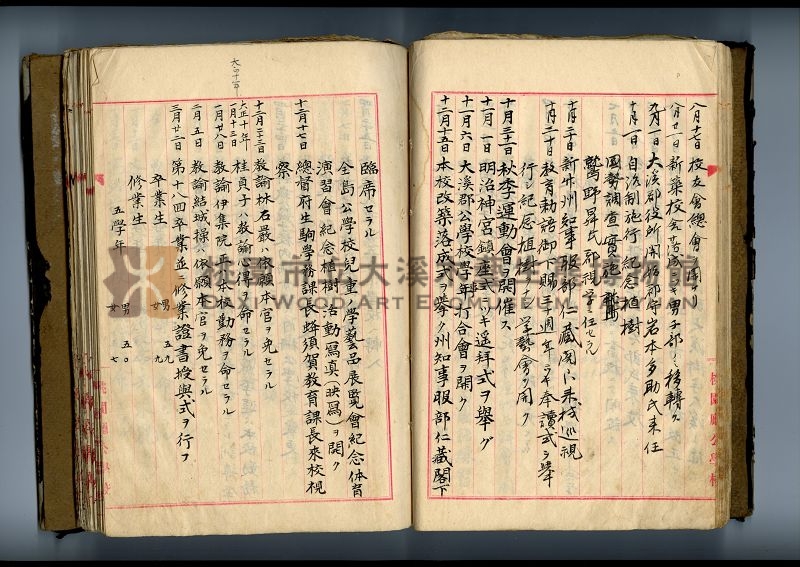 八月十七日 校友會總會ヲ開ケリ
八月廿一日 新築校舍落成シキ男子部ヲ移轉ス
九月一日 大溪郡役所開始郡守岩本多助氏来任
十月一日 自治制施行紀念植樹
國勢調查實施
鷲野昇氏郡視學ニ任セラル
十月二十日 新竹州知事服部仁藏閣下来校巡視
十月三十日 教育勅語御下賜三十週年ニツキ奉讀式ヲ舉
行シ紀念植樹ヲナシ學藝會ヲ開ク
十月三十一日 秋季運動會ヲ開催ス
十一月一日 明治神宮鎮座式ニツキ遥拜式ヲ舉グ
十一月六日 大溪郡公學校學年打合會ヲ開ク
十二月十五日 本校改築落成式ヲ舉ク州知事服部仁藏閣下
臨席セラル
全島公學校兒童ノ學藝品展覽會紀念体育
演習會紀念植樹活動寫真(映寫)ヲ開ク
十二月十七日 總督府生駒學務課長蜂須賀教育課長來校視
察
十二月二十三日 教諭林石嚴ハ依願本官ヲ免セラル
大正十年
一月十三日 桂貞子ハ教諭心得ヲ命セラル
一月廿八日 教諭伊集院 平本校勤務ヲ命セラル
二月五日 教諭結城操ハ依願本官ヲ免セラル
三月廿二日 第十八四卒業並ニ修業證書授與式ヲ行フ
卒業生 男 五九
女 九
修業生
五學年 男 五〇
女 七
大四十二
桃園廳公學校
桃園市立大溪木藝生態博物館
DAXI WOOD ART ECOMUSEUM